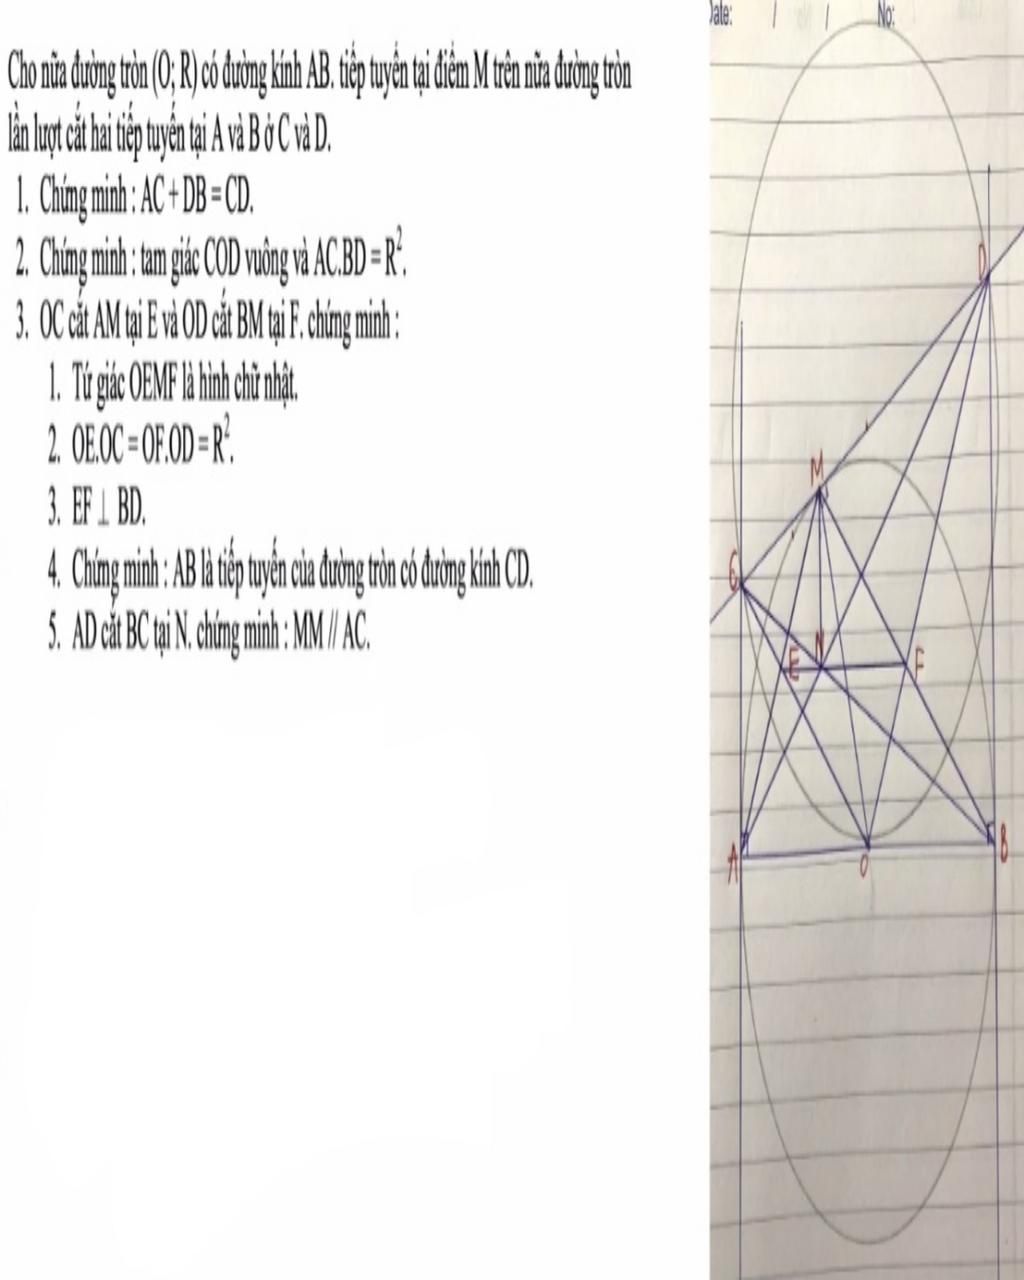 Cho nữa đường tròn (O; R) có đường kính AB. tiếp tuyến tại điểm M trên nữa đường tròn
lần lượt cắt hai tiếp tuyến tại A và B ở C và D.
1. Chứng minh : AC + DB = CD.
2. Chứng minh : tam giác COD vuông và AC.BD = R².
3. OC cắt AM tại E và OD cắt BM tại F. chứng minh :
1. Tứ giác OEMF là hình chữ nhật.
2. OE.OC = OF.OD = R².
3. EF ⊥ BD.
4. Chứng minh : AB là tiếp tuyến của đường tròn có đường kính CD.
5. AD cắt BC tại N. chứng minh : MM // AC.
Date: / / No:
D
M
C
E N F
A O B